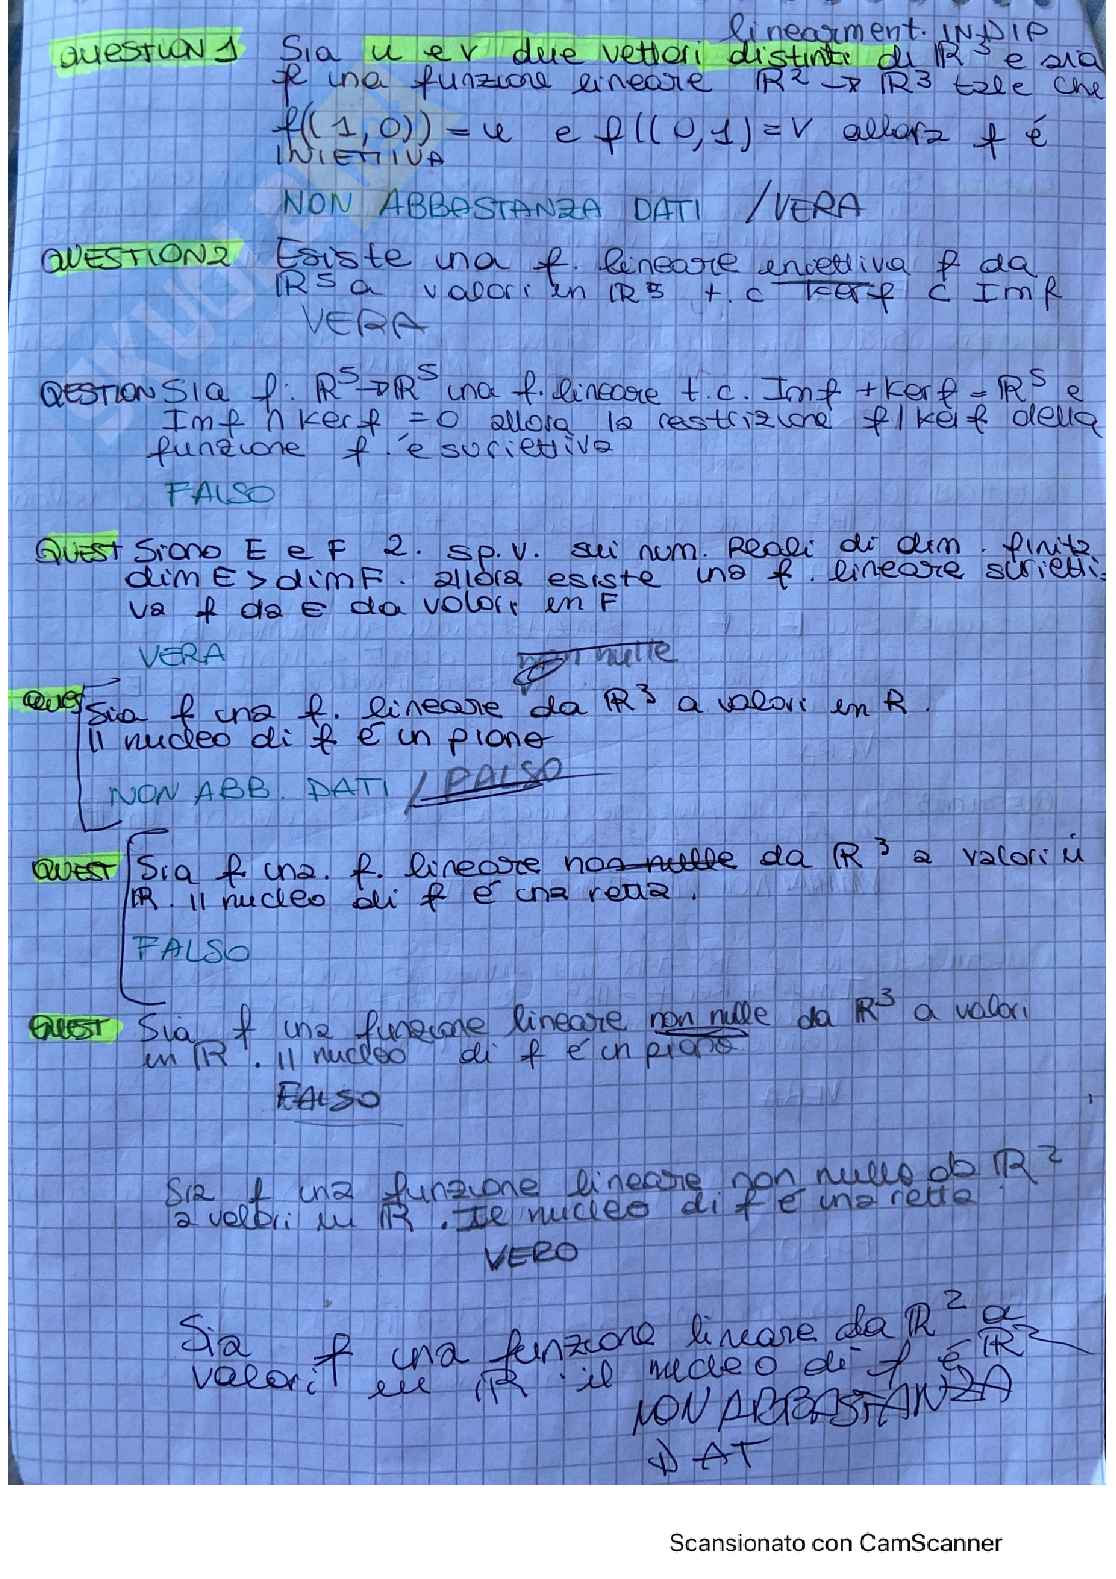 linearment. INDIP
QUESTION 1 Sia u e v due vettori distinti di R³ e sia
f una funzione lineare R² → R³ tale che
f((1,0)) = u e f((0,1) = V allora f é
INIETTIVA
NON ABBASTANZA DATI /VERA
QUESTION2 Esiste una f. lineare eniettiva f da
R5 a valori in R5 t.c Kerf C Imf
VERA
QESTION SIA f: R5→R5 una f. lineare t.c. Imf + Kerf = R5 e
Imf ∩ Kerf = 0 allora la restrizione f/Kerf della
funzione f. é suriettiva
FALSO
QUEST Siano E e F 2. sp.v. sui num. Reali di dim. finita
dim E > dim F. allora esiste una f. lineare surietti-
va f da E da valori en F
VERA
non nulle
QUES Sia f una f. lineare da R³ a valori en R.
Il nucleo di f é un piano
NON ABB. DATI / FALSO
QUEST Sia f una. f. lineare non nulle da R³ a valori ú
R. Il nucleo di f é una retta.
FALSO
QUEST Sia f una funzione lineare non nulle da R³ a valori
in R. Il nucleo di f é un piano
FALSO
Sia f una funzione lineare non nullo da R²
a valori in R. Il nucleo di f é una retta
VERO
Sia f una funzione lineare da R² a
valori in R. il nucleo di f é R²
NON ABBASTANZA
DAT
Scansionato con CamScanner